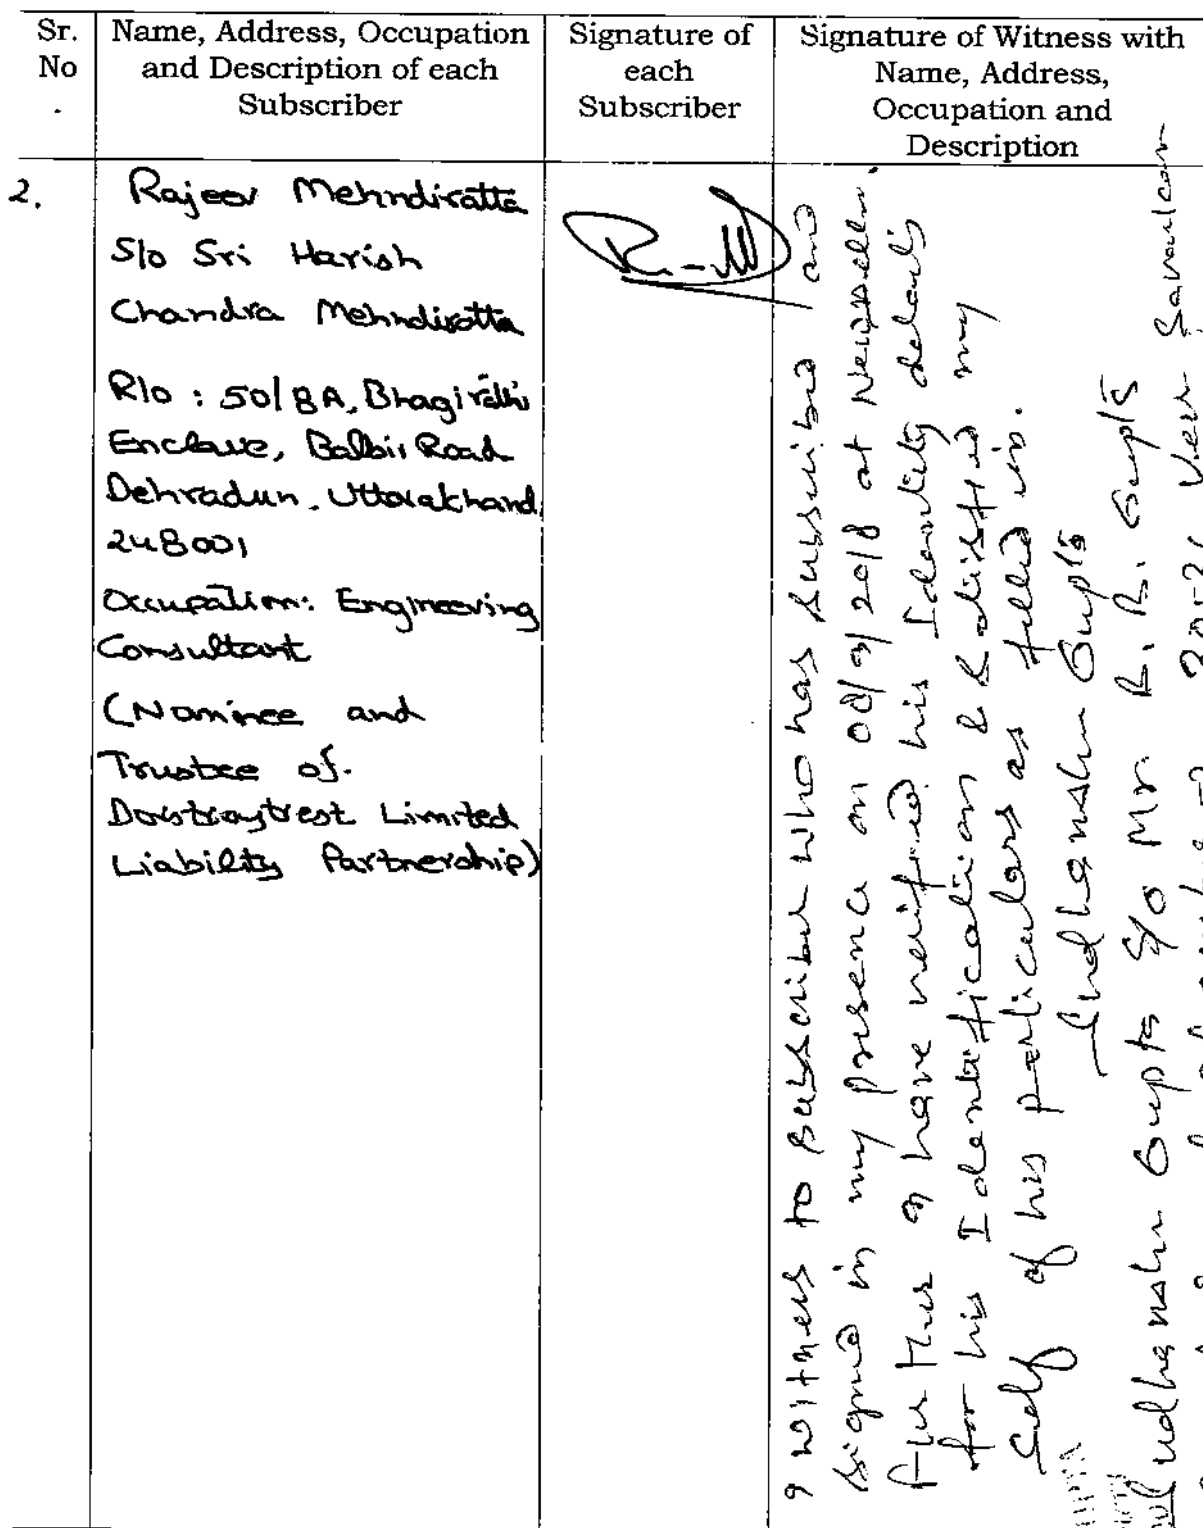 Sr.
No
.
Name, Address, Occupation
and Description of each
Subscriber
Signature of
each
Subscriber
Signature of Witness with
Name, Address,
Occupation and
Description
2.
Rajeev Mehndiratta
S/o Sri Harish
Chandra Mehndiratta
R/o : 50/8A, Bhagirathi
Enclave, Balbir Road
Dehradun, Uttarakhand,
248001
Occupation: Engineering
Consultant
(Nominee and
Trustee of
Limited
Liability Partnership)
I witness to subscriber who has subscribed and
signed in my presence on 08/9/2018 at New Delhi.
further I have verified his Identity details
for his Identification & satisfied my
self of his particulars as filled in.
Sudhanshu Gupta
Sudhanshu Gupta S/o Mr. R. R. Gupta
Veer Savarkar